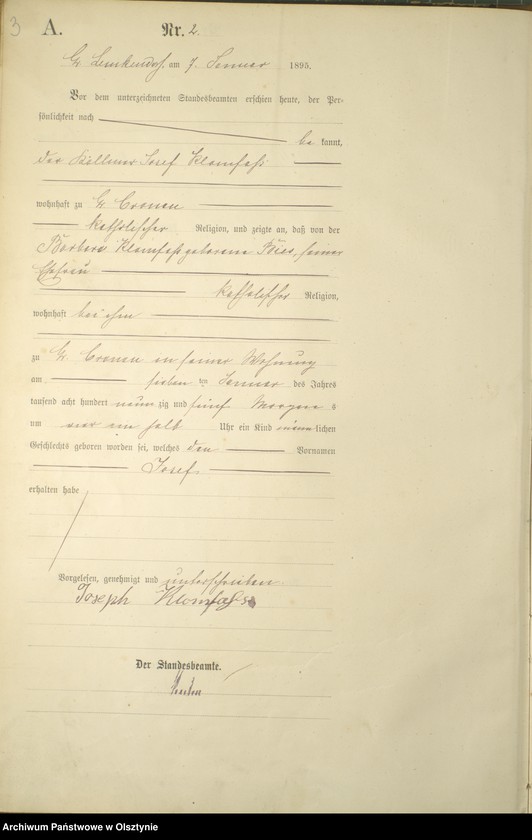 3
A. Nr. 2.
Gr Lemkendorf, am 7. Januar 1895.
Vor dem unterzeichneten Standesbeamten erschien heute, der Per-
sönlichkeit nach
be kannt,
der Josef Klomfaß
wohnhaft zu Gr Cronau
katholischer Religion, und zeigte an, daß von der
Barbara Klomfaß geborene seiner
Ehefrau
katholischer Religion,
wohnhaft bei ihm
zu Gr Cronau in seiner Wohnung
am sieben ten Januar des Jahres
tausend acht hundert neun zig und fünf Morgens
um vier ein halb Uhr ein Kind männ lichen
Geschlechts geboren worden sei, welches den Vornamen
Josef
erhalten habe
Vorgelesen, genehmigt und unterschrieben.
Joseph Klomfass
Der Standesbeamte.
Archiwum Państwowe w Olsztynie